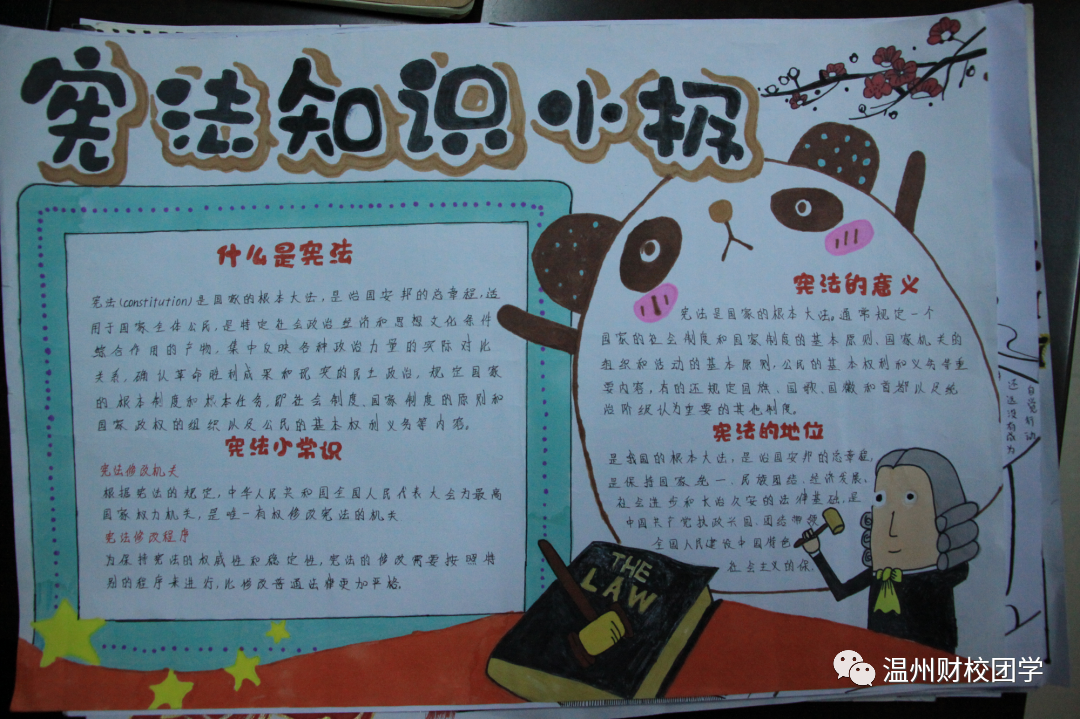 宪法知识小报
什么是宪法
宪法(constitution)是国家的根本大法，是治国安邦的总章程，适
用于国家全体公民，是特定社会政治经济和思想文化条件
综合作用的产物，集中反映各种政治力量的实际对比
关系，确认革命胜利成果和现实的民主政治，规定国家
的根本制度和根本任务，即社会制度、国家制度的原则和
国家政权的组织以及公民的基本权利义务等内容。
宪法小常识
宪法修改机关
根据宪法的规定，中华人民共和国全国人民代表大会为最高
国家权力机关，是唯一有权修改宪法的机关
宪法修改程序
为保持宪法的权威性和稳定性，宪法的修改需要按照特
别的程序来进行，比修改普通法律更加严格。
宪法的意义
宪法是国家的根本大法。通常规定一个
国家的社会制度和国家制度的基本原则、国家机关的
组织和活动的基本原则，公民的基本权利和义务等重
要内容，有的还规定国旗、国歌、国徽和首都以及统
治阶级认为重要的其他制度。
宪法的地位
是我国的根本大法，是治国安邦的总章程，
是保持国家统一、民族团结、经济发展、
社会进步和长治久安的法律基础，是
中国共产党执政兴国、团结带领
全国人民建设中国特色
社会主义的保
THE
LAW
自觉行动
还远没有成为
温州财校团学